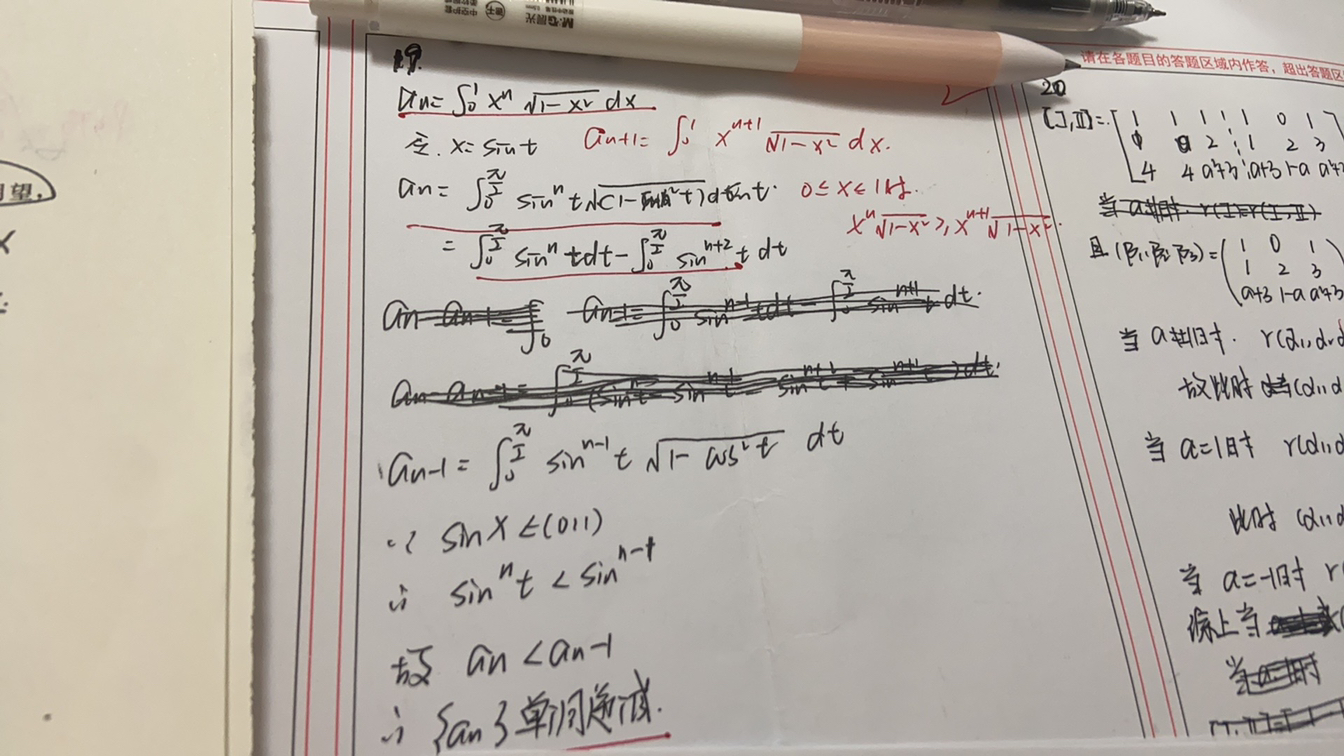 M&G晨光
请在各题目的答题区域内作答，超出答题区
望.
19.
an = ∫₀¹ xⁿ √(1-x²) dx
令. x = sint
an+1 = ∫₀¹ xⁿ⁺¹ √(1-x²) dx.
an = ∫₀^(π/2) sinⁿt √(1-sin²t) dsint.
0≤x≤1时.
xⁿ√(1-x²) ≥, xⁿ⁺¹√(1-x²)
= ∫₀^(π/2) sinⁿt dt - ∫₀^(π/2) sinⁿ⁺²t dt
an-1 = ∫₀^(π/2) sinⁿ⁻¹t √(1-cos²t) dt
∵ sinx ∈ (0,1)
∴ sinⁿt < sinⁿ⁻¹
故 an < an-1
∴ {an} 单调递减.
20
[Ⅰ,Ⅱ] = [ 1 1 1 ⋮ 1 0 1 ]
2 ⋮ 1 2 3
4 4 a²+3 ⋮ a+3 1-a a²+3
且 (β₁,β₂ β₃) = ( 1 0 1
1 2 3
a+3 1-a a²+3
当 a≠1时. r(α₁,α
故此时 (α₁,α
当 a=1时 r(α₁,α
此时 (α₁,α
当 a=-1时 r(
综上当